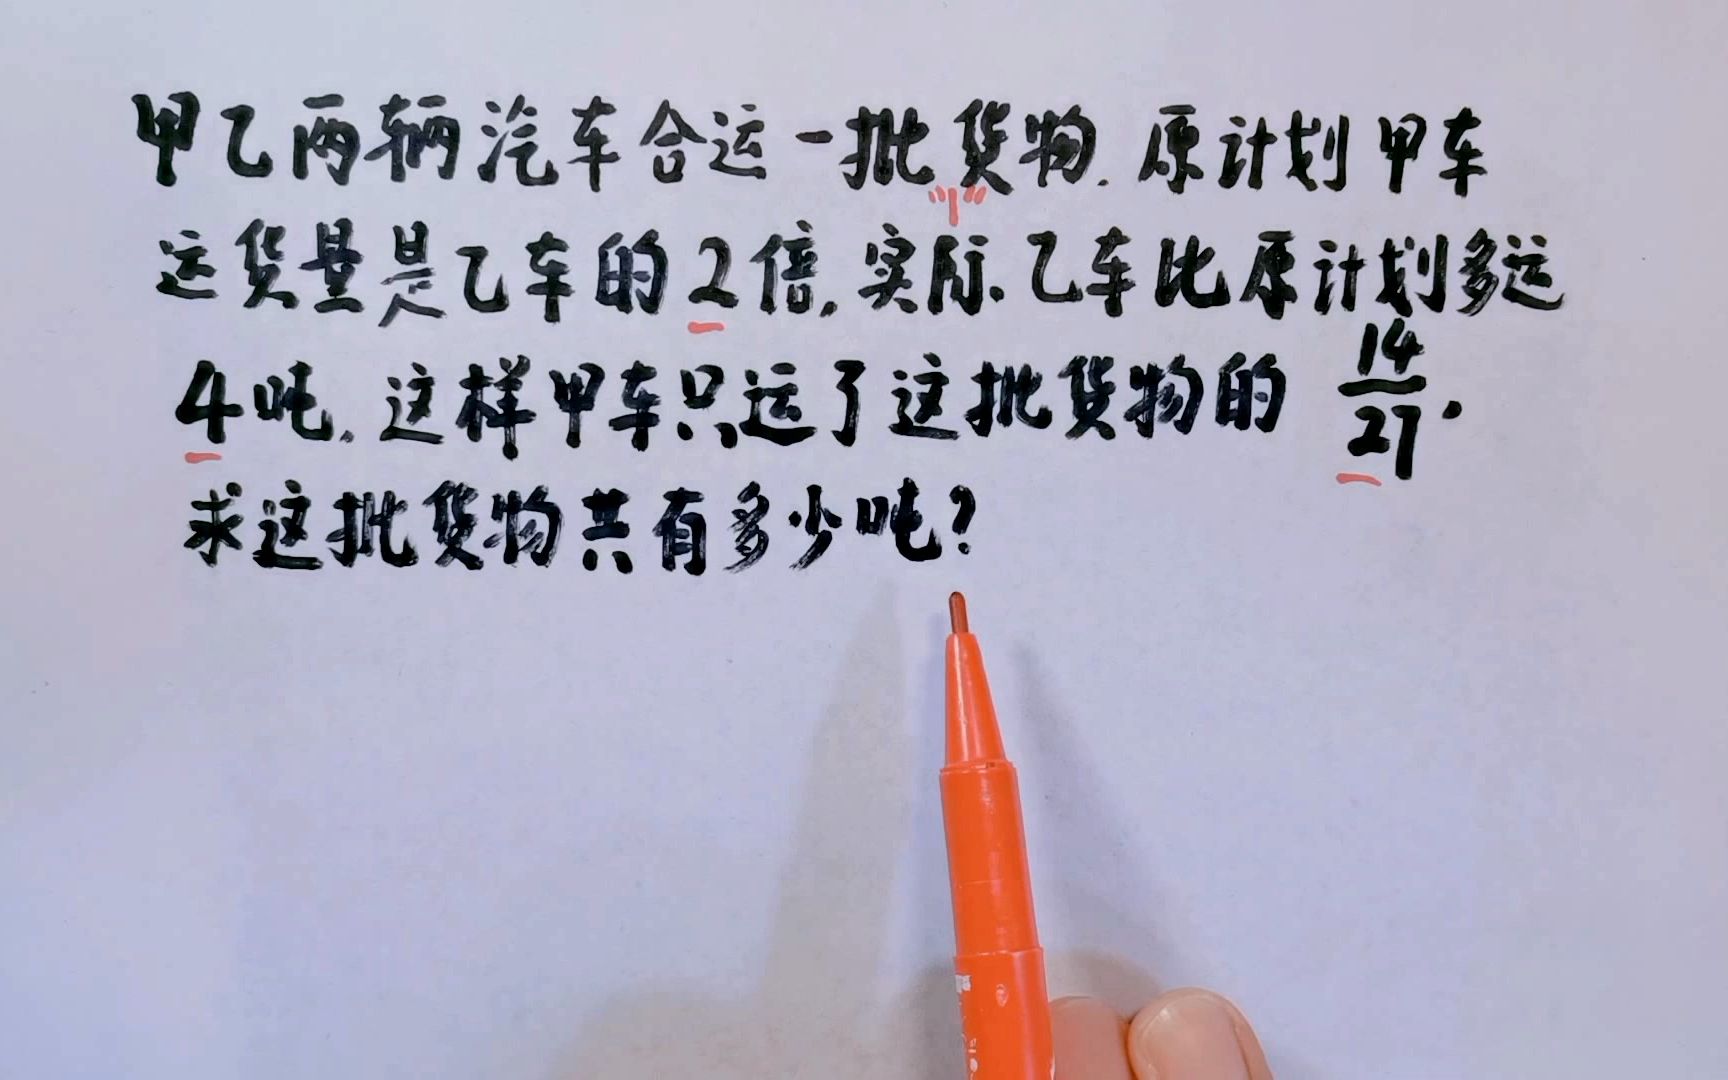 甲乙两辆汽车合运一批货物.原计划甲车
"1"
运货量是乙车的2倍.实际.乙车比原计划多运
4吨.这样甲车只运了这批货物的14/27.
求这批货物共有多少吨?